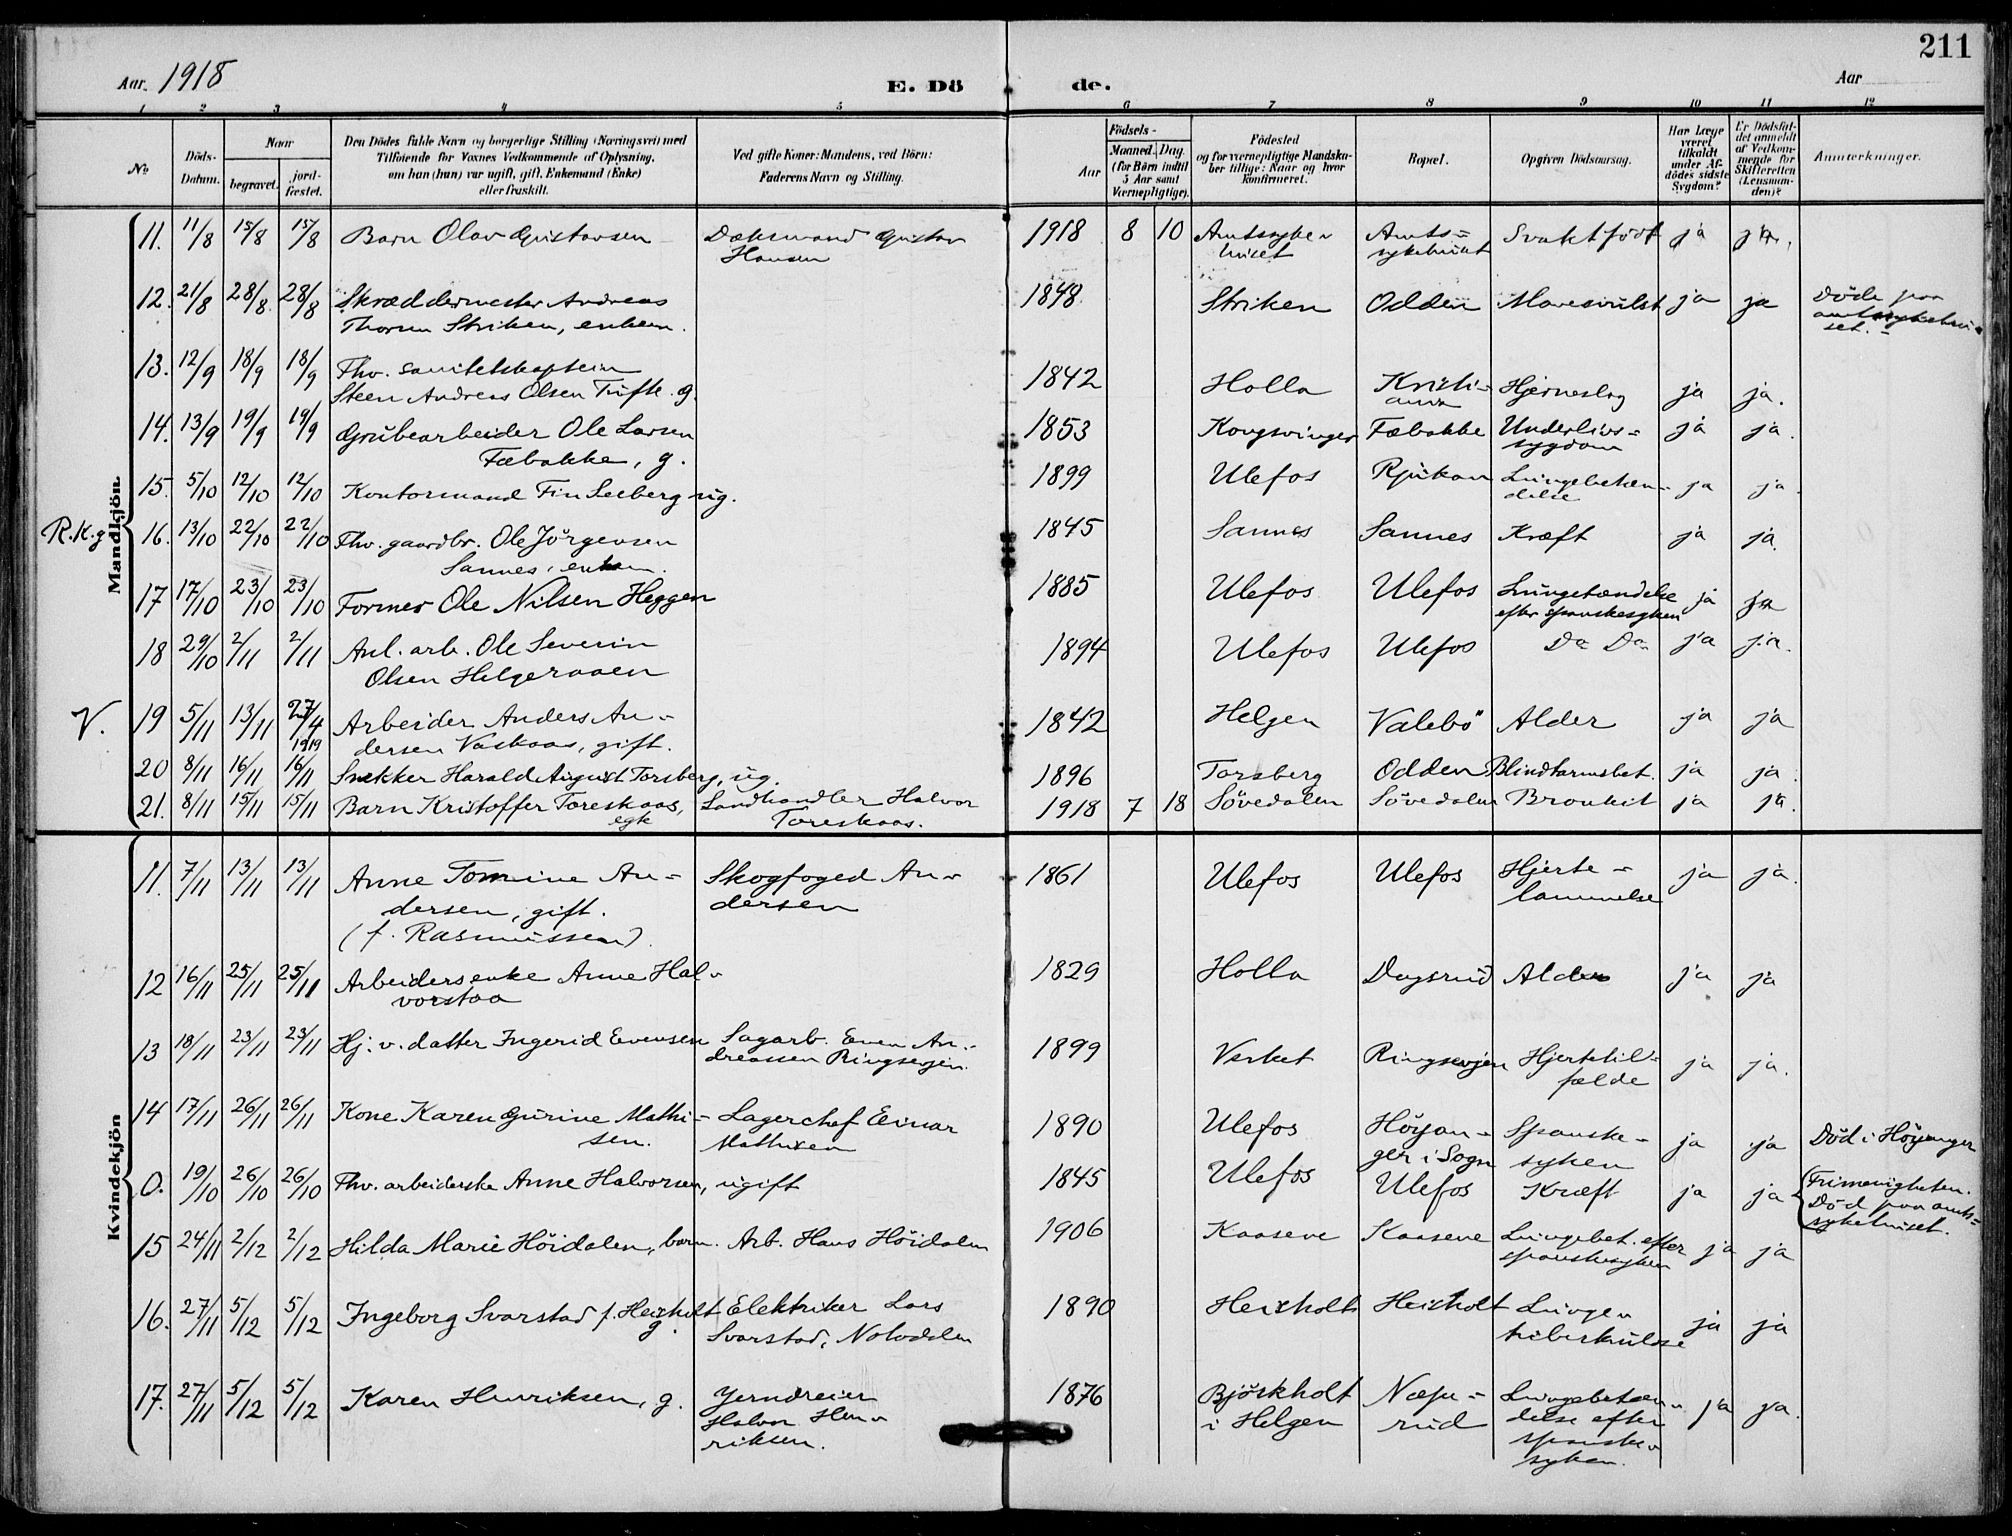 211
Aar. 1918 E. Dö de. Aar
1 2 3 4 5 6 7 8 9 10 11 12
No
Döds-Datum.
Naar
begravet.
jord-fæstet.
Den Dödes fulde Navn og borgerlige Stilling (Næringsvei) med
Tilföiende for Voxnes Vedkommende af Oplysning,
om han (hun) var ugift, gift, Enkemand (Enke)
eller fraskilt.
Ved gifte Koner: Mandens, ved Börn:
Faderens Navn og Stilling.
Födsels-
Aar
Maaned. Dag.
(for Börn indtil
5 Aar samt
Værnepligtige).
Födested
og for værnepligtige Mandska-
ber tillige: Naar og hvor
konfirmeret.
Bopæl.
Opgiven Dödsaarsag.
Har Læge
været
tilkaldt
under Af-
dödes sidste
Sygdom?
Er Dödsfal-
det anmeldt
af Vedkom-
mende for
Skifteretten
(Lensman-
den)?
Anmærkninger.
Mandkjön
11. 11/8 15/8 15/8 Barn Olav Gustavsen Dæksmand Gustav 1918 8 10 Amtssyke- Amts- Svaktfödt ja ja.
Hansen huset sykehuset
12. 21/8 28/8 28/8 Skræddermester Andreas 1848 Striken Odden Mavesvulst ja ja Döde paa
Thorsen Striken, enkem. amtssykehu-
set.-
13. 12/9 18/9 18/9 Fhv. sanitetskaptein
Steen Andreas Olsen Tufte. g. 1842 Holla Kristi- Hjerneslag ja ja.
ania
14. 13/9 19/9 19/9 Grubearbeider Ole Larsen 1853 Kongsvinger Fæbakke Underlivs- ja ja.
Fæbakke, g. sygdom
15. 5/10 12/10 12/10 Kontormand Fin Seeberg ug. 1899 Ulefos Rjukan Lungebetæn- ja ja.
delse
R.K.g 16. 13/10 22/10 22/10 Fhv. gaardbr. Ole Jörgensen 1845 Sannes Sannes Kræft ja ja.
Sannes, enkem.
17 17/10 23/10 23/10 Former Ole Nilsen Heggen 1885 Ulefos Ulefos Lungetændelse ja ja
efter spanskesyken
18 29/10 2/11 2/11 Anl. arb. Ole Severin 1894 Ulefos Ulefos Do Do ja ja.
Olsen Helgeraaen
V. 19 5/11 13/11 27/4 1919 Arbeider Anders An- 1842 Helgen Valebö Alder ja ja
dersen Vaskaas, gift.
20 8/11 16/11 16/11 Snekker Harald August Torsberg, ug. 1896 Torsberg Odden Blindtarmsbet. ja ja.
21. 8/11 15/11 15/11 Barn Kristoffer Toreskaas, Landhandler Halvor 1918 7 18 Sövedalen Sövedalen Bronkit ja ja.
egte Toreskaas.
Kvindekjön
11. 7/11 13/11 13/11 Anne Tomine An- Skogfoged An- 1861 Ulefos Ulefos Hjerte- ja ja.
dersen, gift. dersen lammelse
(f. Rasmussen).
12 16/11 25/11 25/11 Arbeidersenke Anne Hal- 1829 Holla Dagsrud Alder ja ja
vorstaa
13 18/11 23/11 23/11 Hj. v. datter Ingerid Evensen Sagarb. Even An- 1899 Verket Ringsevjen Hjertetil- ja ja.
dreassen Ringsevjen. fælde
14 17/11 26/11 26/11 Kone Karen Gurine Mathi- Lagerchef Einar 1890 Ulefos Höyan- Spanske- ja ja Död i Höyanger
sen. Mathisen ger i Sogn syken
0. 19/10 26/10 26/10 Fhv. arbeiderske Anne Halvorsen, ugift 1845 Ulefos Ulefos Kræft ja ja (Frimenigheten.
Död paa amts-
sykehuset.
15 24/11 2/12 2/12 Hilda Marie Höidalen, barn. Arb. Hans Höidalen 1906 Kaasene Kaasene Lungebet. efter ja ja
spanskesyken
16. 27/11 5/12 5/12 Ingeborg Svarstad f. Heisholt Elektriker Lars 1890 Heisholt Heisholt Lunge- ja ja
g. Svarstad, Notodden tuberkulose
17. 27/11 5/12 5/12 Karen Henriksen, g. Jerndreier 1876 Björkholt Næpe- Lungebetæn- ja ja.
Halvor Hen- i Helgen rud delse efter
riksen. spanske-
syken.